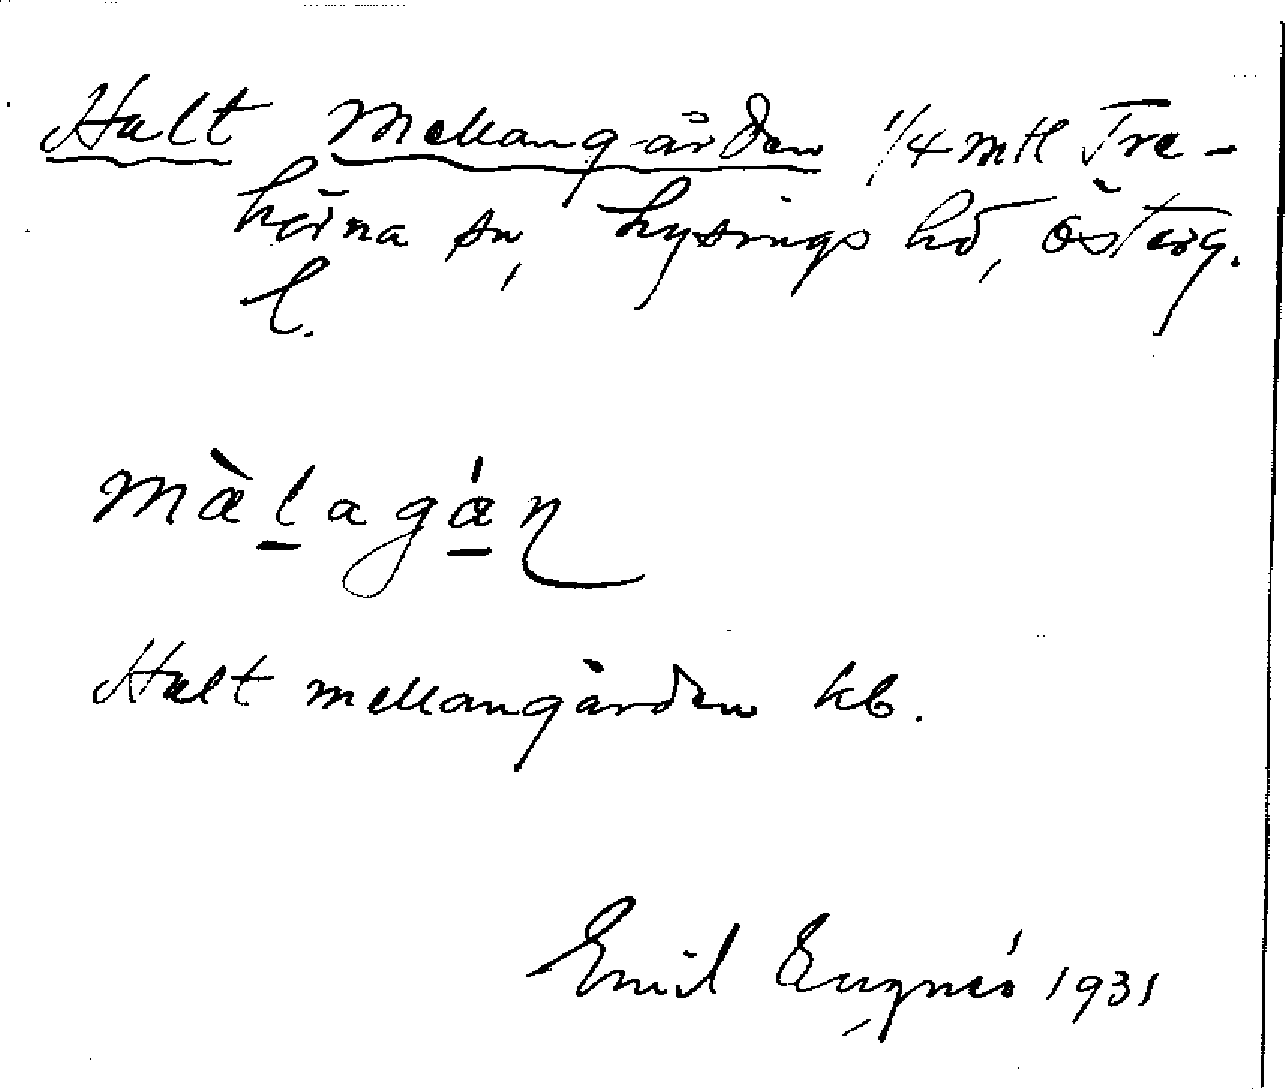 Halt Mellangården 1/4 mtl Tre-
hörna sn, Lysings hd, Österg.
l.
mæ̀l̠agǽ̠ɳ
Halt mellangården kb.
Emil 1931